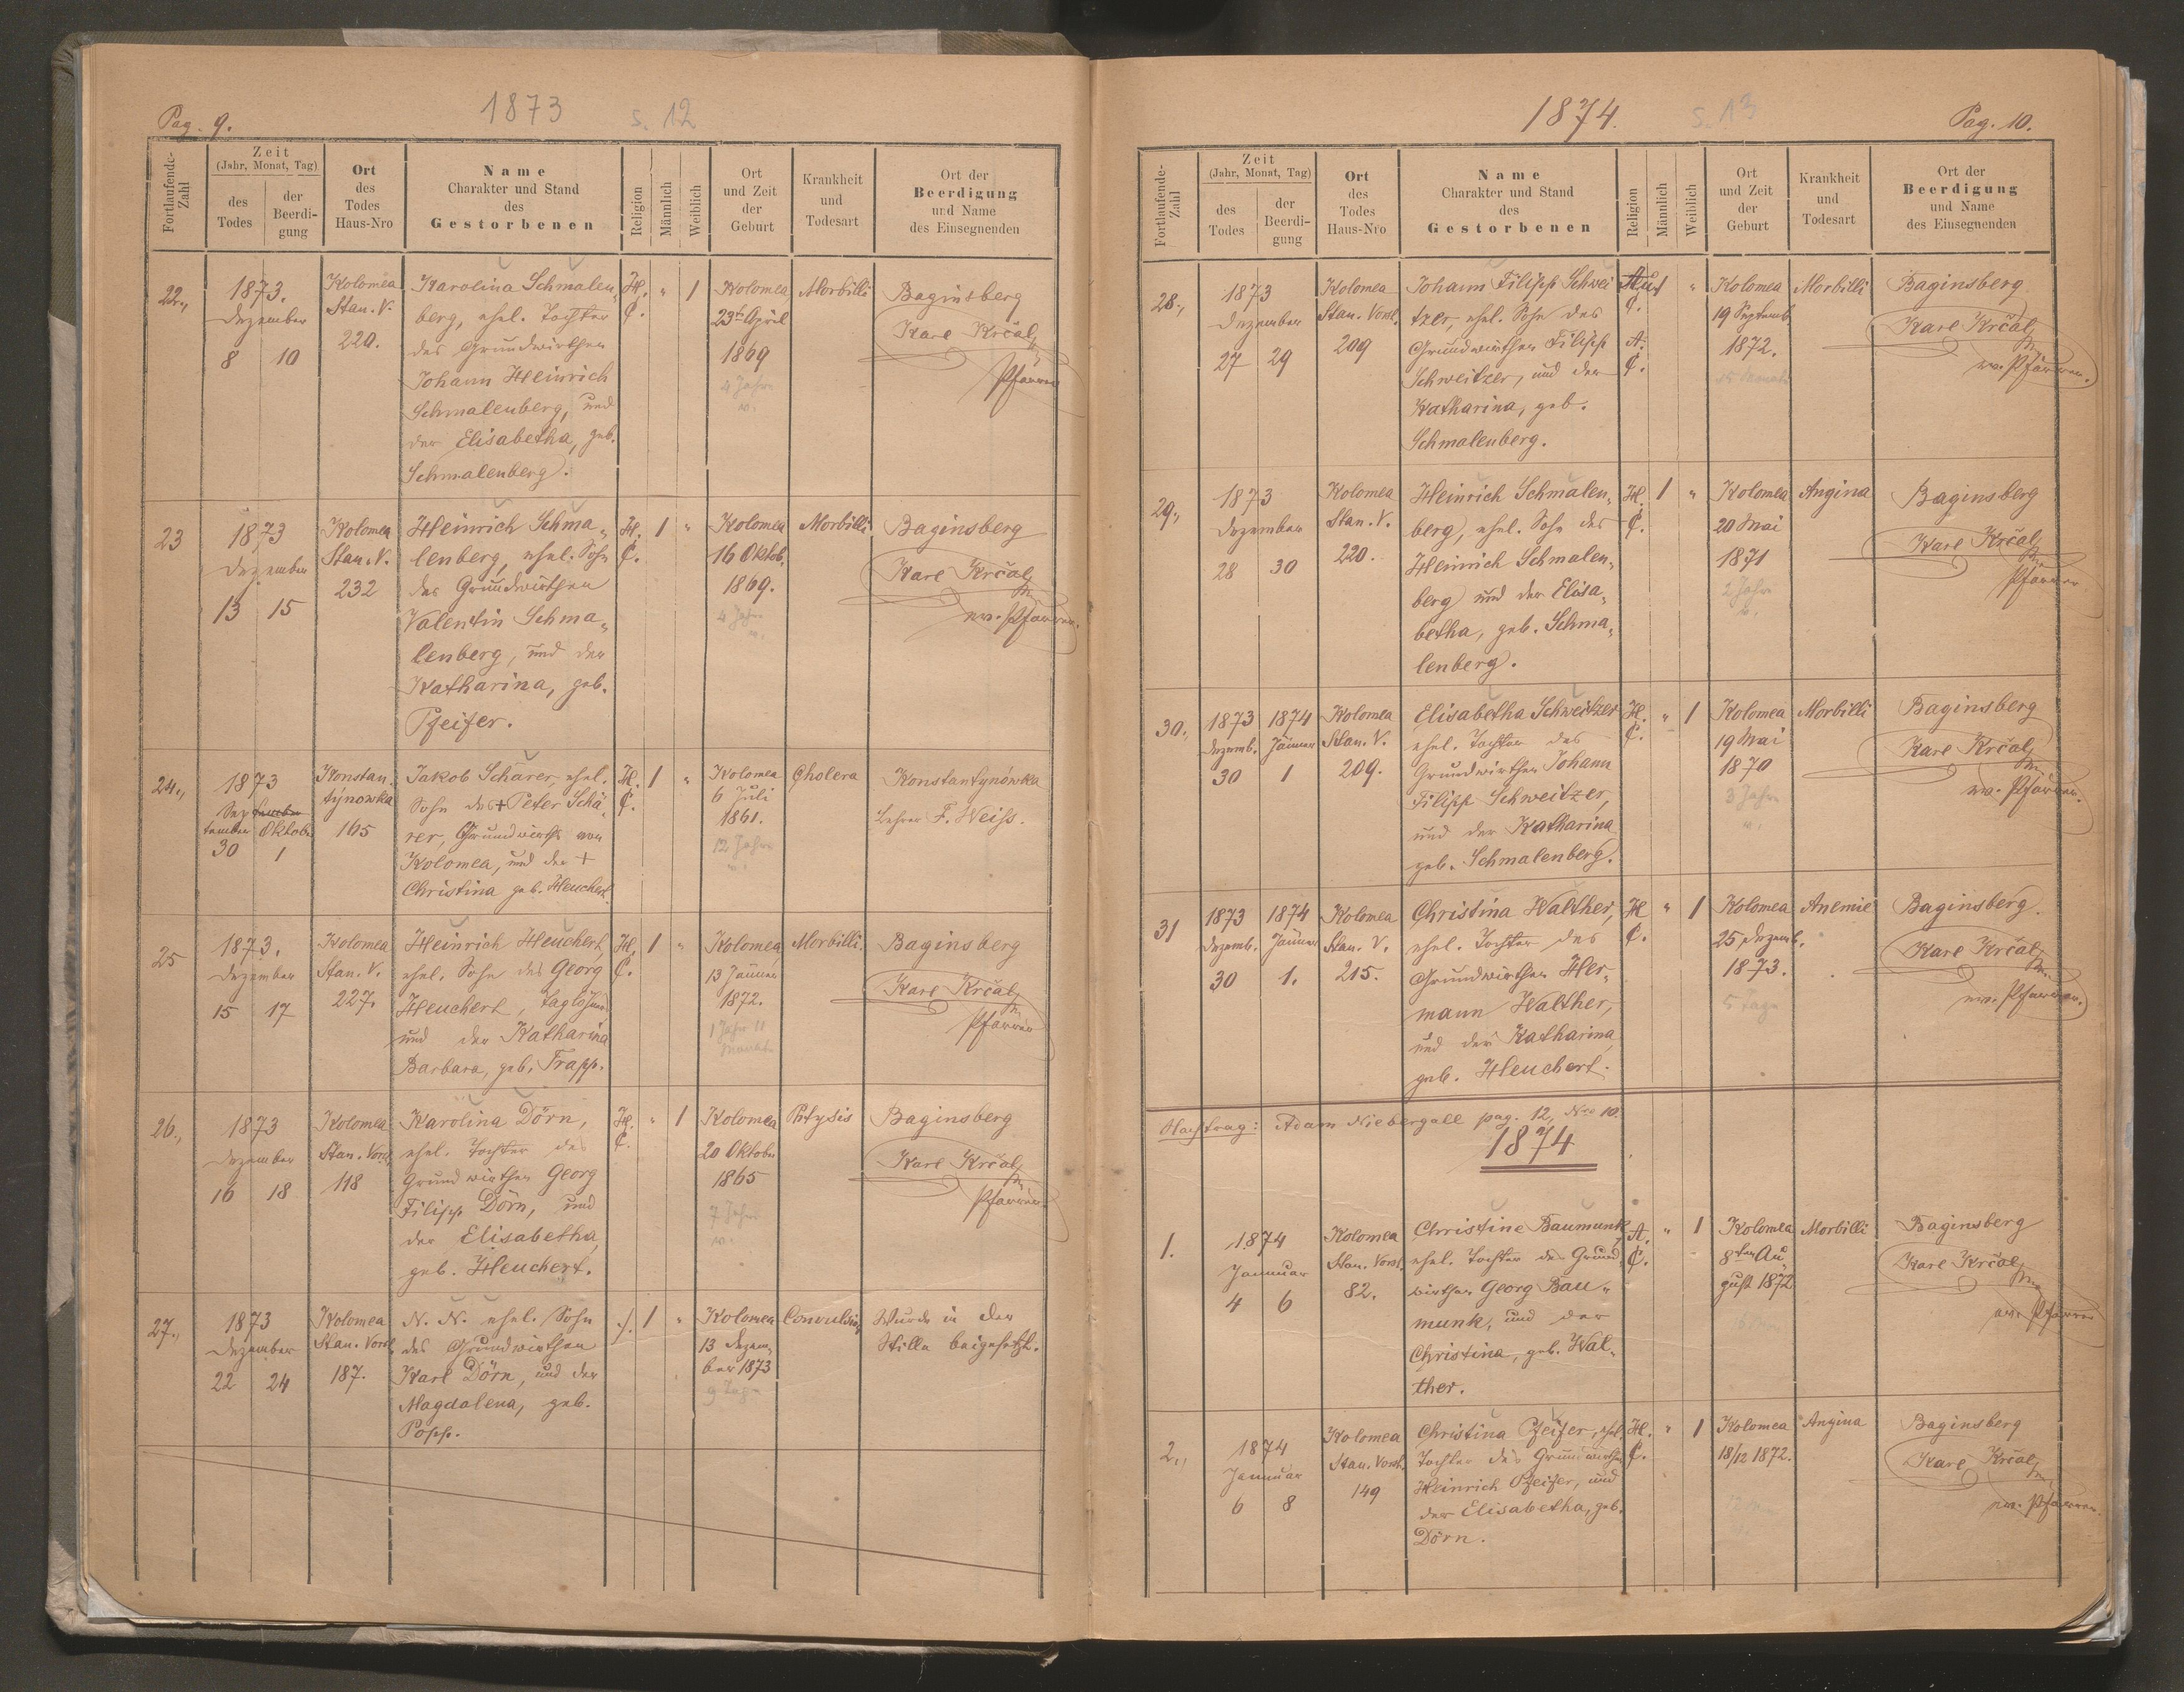 Pag. 9.
1873
s. 12
Fortlaufende-Zahl
Zeit
(Jahr, Monat, Tag)
des Todes
der Beerdi-gung
Ort
des
Todes
Haus-Nro
Name
Charakter und Stand
des
Gestorbenen
Religion
Männlich
Weiblich
Ort
und Zeit
der
Geburt
Krankheit
und
Todesart
Ort der
Beerdigung
und Name
des Einsegnenden
22.,
1873.
Dezember
8 10
Kolomea
Stan. V.
220.
Karolina Schmalen-
berg, ehel. Tochter
des Grundwirthen
Johann Heinrich
Schmalenberg, und
der Elisabetha, geb.
Schmalenberg.
H.
C.
" 1
Kolomea
23ten April
1869
4 Jahre
Morbilli
Baginsberg
Karl Krčal
Pfarrer
23
1873
Dezember
13 15
Kolomea
Stan. V.
232
Heinrich Schma-
lenberg, ehel. Sohn
des Grundwirthen
Valentin Schma-
lenberg, und der
Katharina, geb.
Pfeifer.
H.
C.
1 "
Kolomea
16 Oktob.
1869.
4 Jahre
Morbilli
Baginsberg
Karl Krčal
ev. Pfarrer
24.,
1873
September Oktober
30 1
Konstan-
tynowka
165
Jakob Schärer, ehel.
Sohn des + Peter Schä-
rer, Grundwirth von
Kolomea, und der +
Christina geb. Heuchert
H.
C.
1 "
Kolomea
6 Juli
1861.
12 Jahre
Cholera
Konstantynówka
Lehrer F. Weiss.
25
1873.
Dezember
15 17
Kolomea
Stan. V.
227.
Heinrich Heuchert,
ehel. Sohn des Georg
Heuchert, Taglöhner
und der Katharina
Barbara, geb. Trapp.
H.
C.
1 "
Kolomea
13 Jänner
1872.
1 Jahr 11
Monate
Morbilli.
Baginsberg
Karl Krčal
Pfarrer
26.,
1873
Dezember
16 18
Kolomea
Stan. Vorst.
118
Karolina Dörn,
ehel. Tochter des
Grundwirthen Georg
Filipp Dörn, und
der Elisabetha,
geb. Heuchert.
H.
C.
" 1
Kolomea
20 Oktober
1865
7 Jahre
Phtysis
Baginsberg
Karl Krčal
Pfarrer
27.,
1873
Dezember
22 24
Kolomea
Stan. Vorst.
187.
N. N. ehel. Sohn
des Grundwirthen
Karl Dörn, und der
Magdalena, geb.
Popp.
./.
1 "
Kolomea
13 Dezem-
ber 1873
9 Tage
Convulsion
Wurde in der
Stille beigesetzt.
1874.
s. 13
Pag. 10.
Fortlaufende-Zahl
Zeit
(Jahr, Monat, Tag)
des Todes
der Beerdi-gung
Ort
des
Todes
Haus-Nro
Name
Charakter und Stand
des
Gestorbenen
Religion
Männlich
Weiblich
Ort
und Zeit
der
Geburt
Krankheit
und
Todesart
Ort der
Beerdigung
und Name
des Einsegnenden
28.,
1873
Dezember
27 29
Kolomea
Stan. Vorst.
209
Johann Filipp Schwei
tzer, ehel. Sohn des
Grundwirthen Filipp
Schweitzer, und der
Katharina, geb.
Schmalenberg.
C.
A.
C.
1 "
Kolomea
19 Septemb.
1872.
15 Monate
Morbilli
Baginsberg
Karl Krčal
ev. Pfarrer.
29.,
1873
Dezember
28 30
Kolomea
Stan. V.
220.
Heinrich Schmalen-
berg, ehel. Sohn des
Heinrich Schmalen-
berg und der Elisa-
betha, geb. Schma-
lenberg.
H.
C.
1 "
Kolomea
20 Mai
1871
2 Jahre
Angina
Baginsberg
Karl Krčal
Pfarrer
30.,
1873 1874
Dezemb. Jänner
30 1
Kolomea
Stan. V.
209.
Elisabetha Schweitzer
ehel. Tochter des
Grundwirthen Johann
Filipp Schweitzer,
und der Katharina
geb. Schmalenberg.
H.
C.
" 1
Kolomea
19 Mai
1870
3 Jahre
Morbilli
Baginsberg
Karl Krčal
ev. Pfarrer.
31
1873 1874
Dezemb. Jänner
30 1.
Kolomea
Stan. V.
215.
Christina Walther,
ehel. Tochter des
Grundwirthen Her-
mann Walther,
und der Katharina
geb. Heuchert.
H
C.
" 1
Kolomea
25 Dezemb.
1873.
5 Tage
Anemie
Baginsberg.
Karl Krčal
ev. Pfarrer.
Nachtrag: Adam Niebergall pag. 12, Nro 10.
1874
1.
1874
Januar
4 6
Kolomea
Stan. Vorst.
82.
Christine Baumunk,
ehel. Tochter des Grund-
wirthen Georg Bau-
munk, und der
Christina, geb. Wal-
ther.
A.
C.
" 1
Kolomea
8ten Au-
gust 1872
Morbilli
Baginsberg
Karl Krčal
ev. Pfarrer
2.,
1874
Januar
6 8
Kolomea
Stan. Vorst.
149
Christina Pfeifer, ehel.
Tochter des Grundwirthen
Heinrich Pfeifer, und
der Elisabetha, geb.
Dörn.
H.
C.
" 1
Kolomea
18/12 1872.
Angina
Baginsberg
Karl Krčal
ev. Pfarrer.